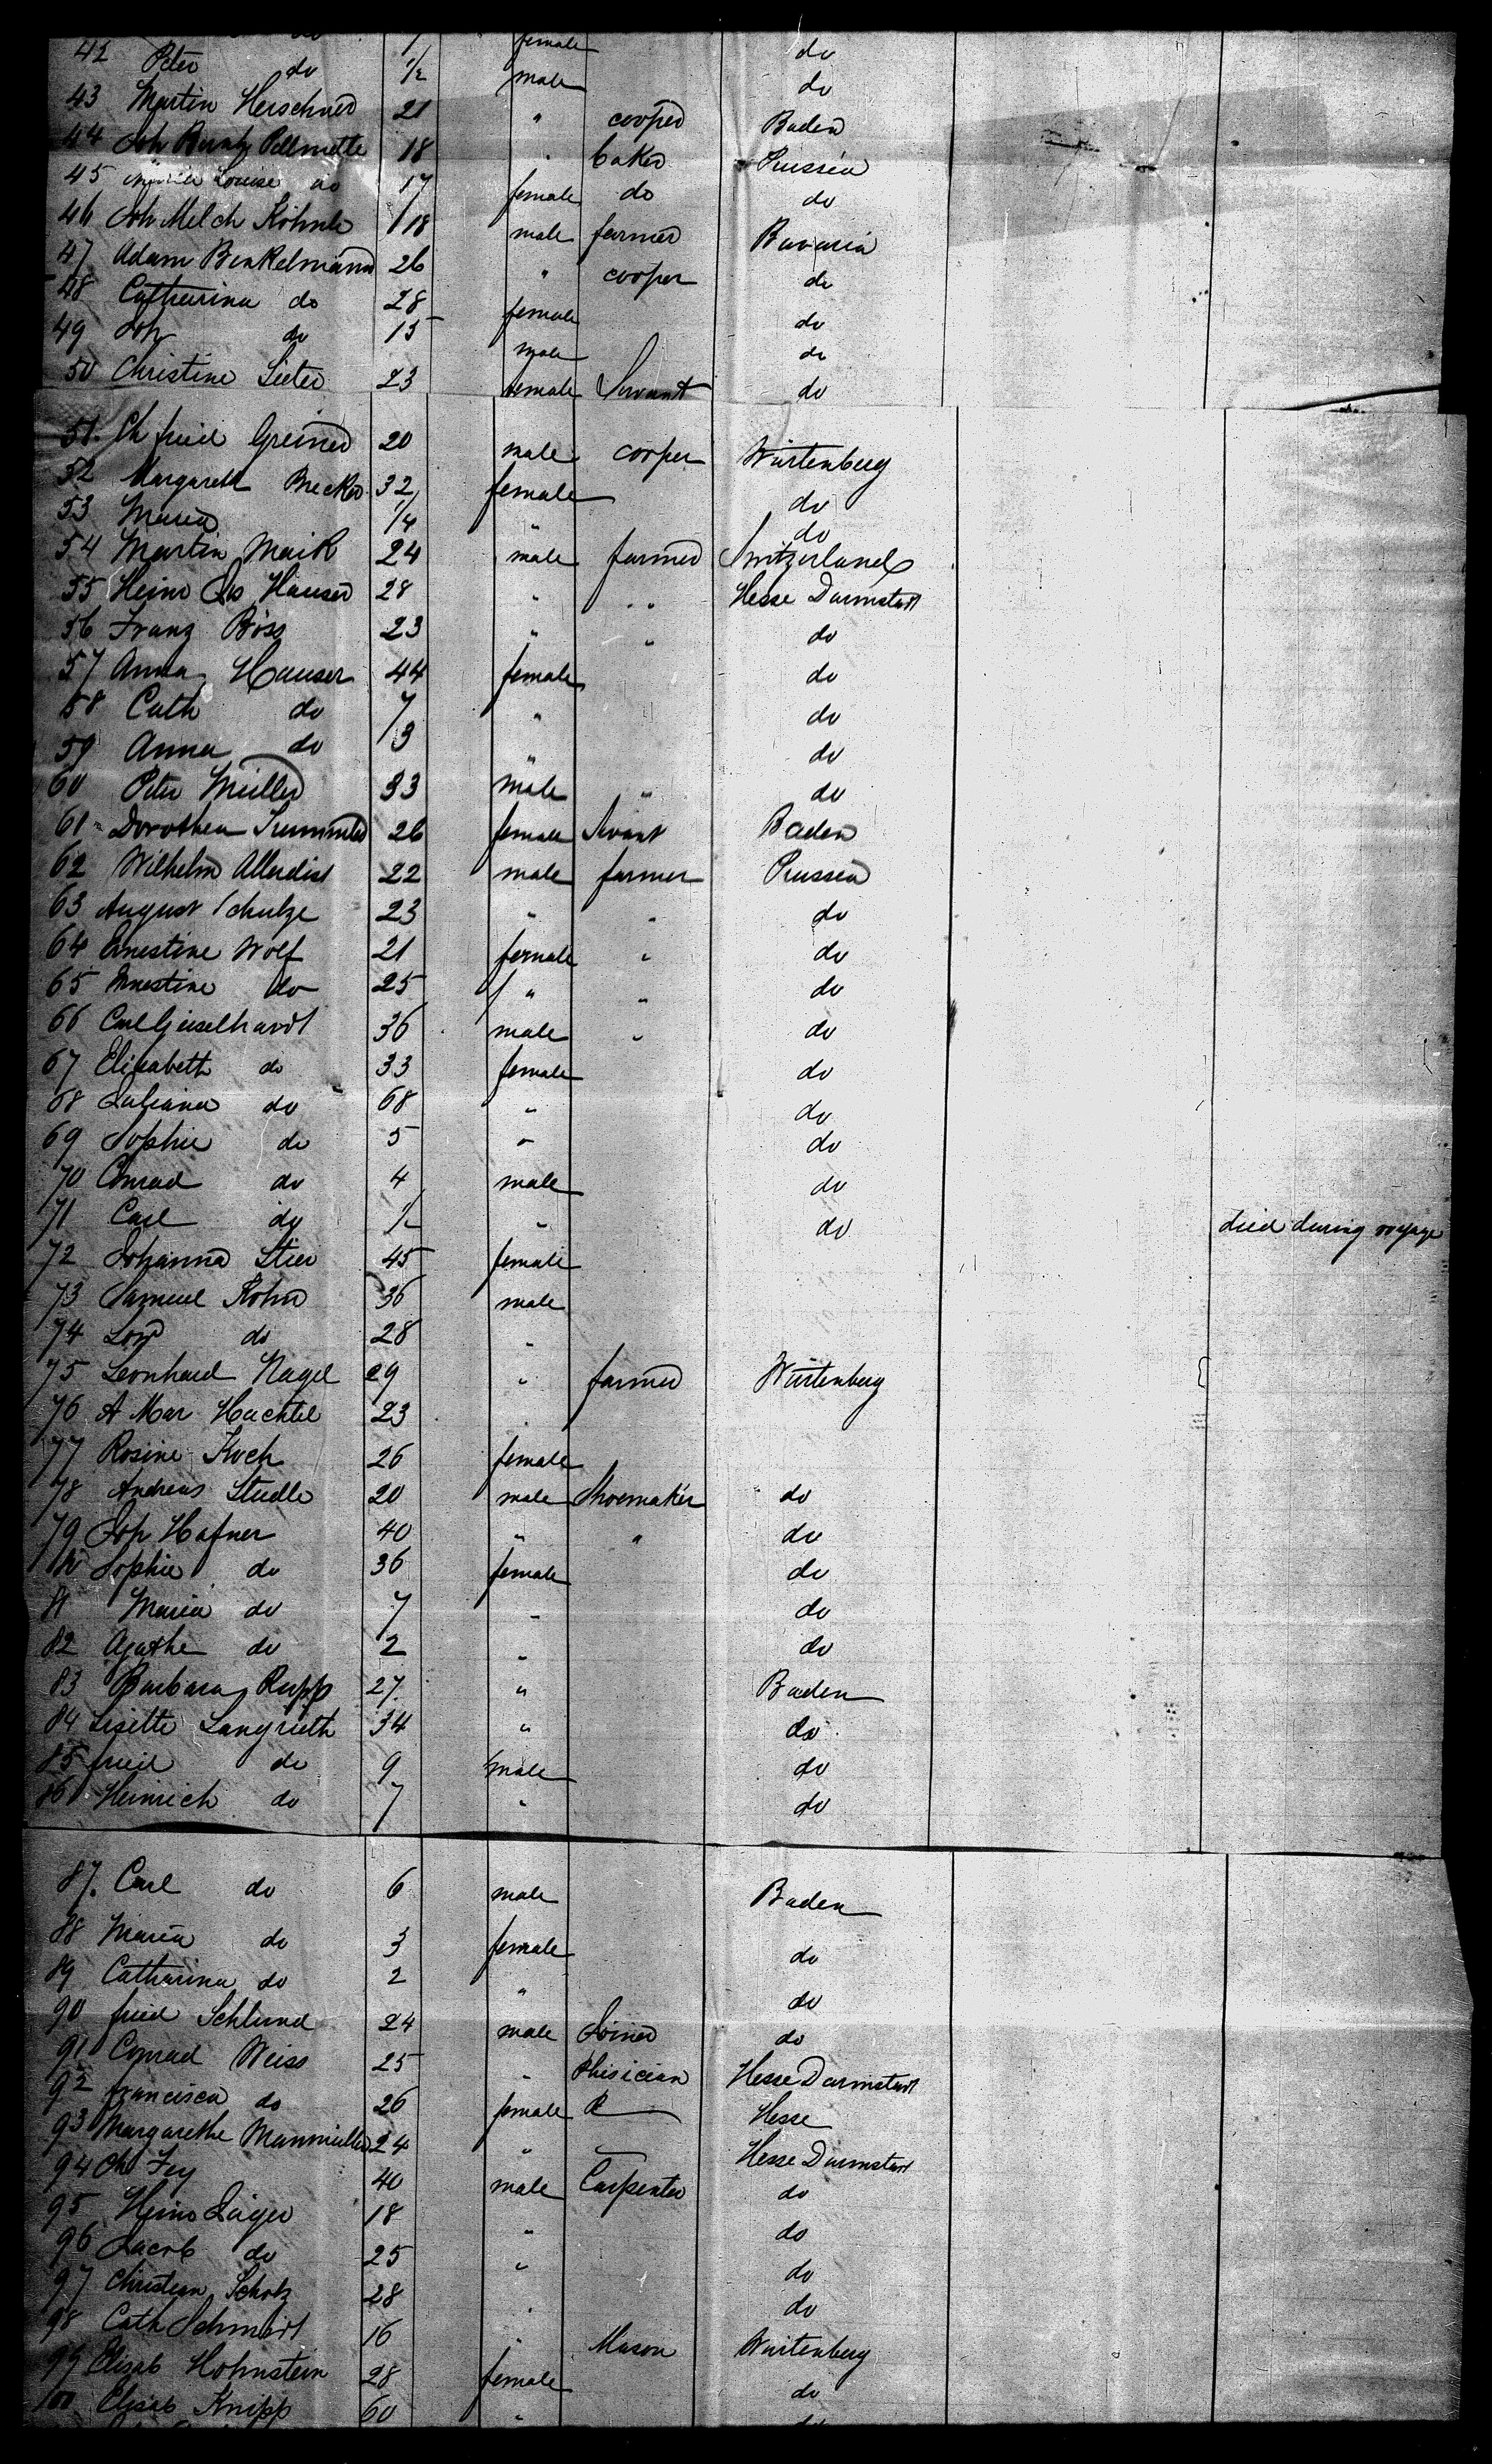 do 1 female do
42 Peter do 1/2 male do
43 Martin Herschner 21 " cooper Baden
44 Joh Pellmette 18 " baker Prussia
45 Louise do 17 female do do
46 Joh Melch Köhnle 18 male farmer Bavaria
47 Adam Binkelmann 26 " cooper do
48 Catharina do 28 female do
49 Joh do 15 male do
50 Christine Seeter 23 female Servant do
51. Ch fried Greiner 20 male cooper Würtenberg
52 Margareth Becker 32 female do
53 Maria 1/4 " do
54 Martin Maik 24 male farmer Switzerland
55 Heinr Hauser 28 " " Hesse Darmstadt
56 Franz Böss 23 " " do
57 Anna Hauser 44 female do
58 Cath do 7 " do
59 Anna do 3 " do
60 Peter Müller 33 male " do
61 Dorothea 26 female Servant Baden
62 Wilhelm Allerdist 22 male farmer Prussia
63 August Schulze 23 " " do
64 Ernestine Wolf 21 female " do
65 Ernestine do 25 " " do
66 Carl Geiselhardt 36 male " do
67 Elisabeth do 33 female do
68 Juliana do 68 " do
69 Sophie do 5 " do
70 Conrad do 4 male do
71 Carl do 1/2 " do died during voyage
72 Johanna Stier 45 female
73 Samuel Kohn 36 male
74 do 28 "
75 Leonhard Nagel 29 " farmer Würtenberg
76 A Mar Hachtel 23 "
77 Rosine Koch 26 female
78 Andreas Studle 20 male Shoemaker do
79 Joh Hafner 40 " " do
80 Sophie do 36 female do
81 Maria do 7 " do
82 Agathe do 2 " do
83 Barbara Rupp 27 " Baden
84 Lisette Langrieth 34 " do
85 fried do 9 male do
86 Heinrich do 7 " do
87. Carl do 6 male Baden
88 Maria do 3 female do
89 Catharina do 2 " do
90 fried Schlund 24 male Joiner do
91 Conrad Weiss 25 " Phisician Hesse Darmstadt
92 francisca do 26 female Hesse
93 Margarethe Manmüller 24 " Hesse Darmstadt
94 Ch Fey 40 male Carpenter do
95 Heinr Jäger 18 " do
96 Jacob do 25 " do
97 Christian Scholz 28 " do
98 Cath Schmidt 16 " Mason Würtenberg
99 Elisab Hohnstein 28 female do
100 Elisab Knipp 60 " do